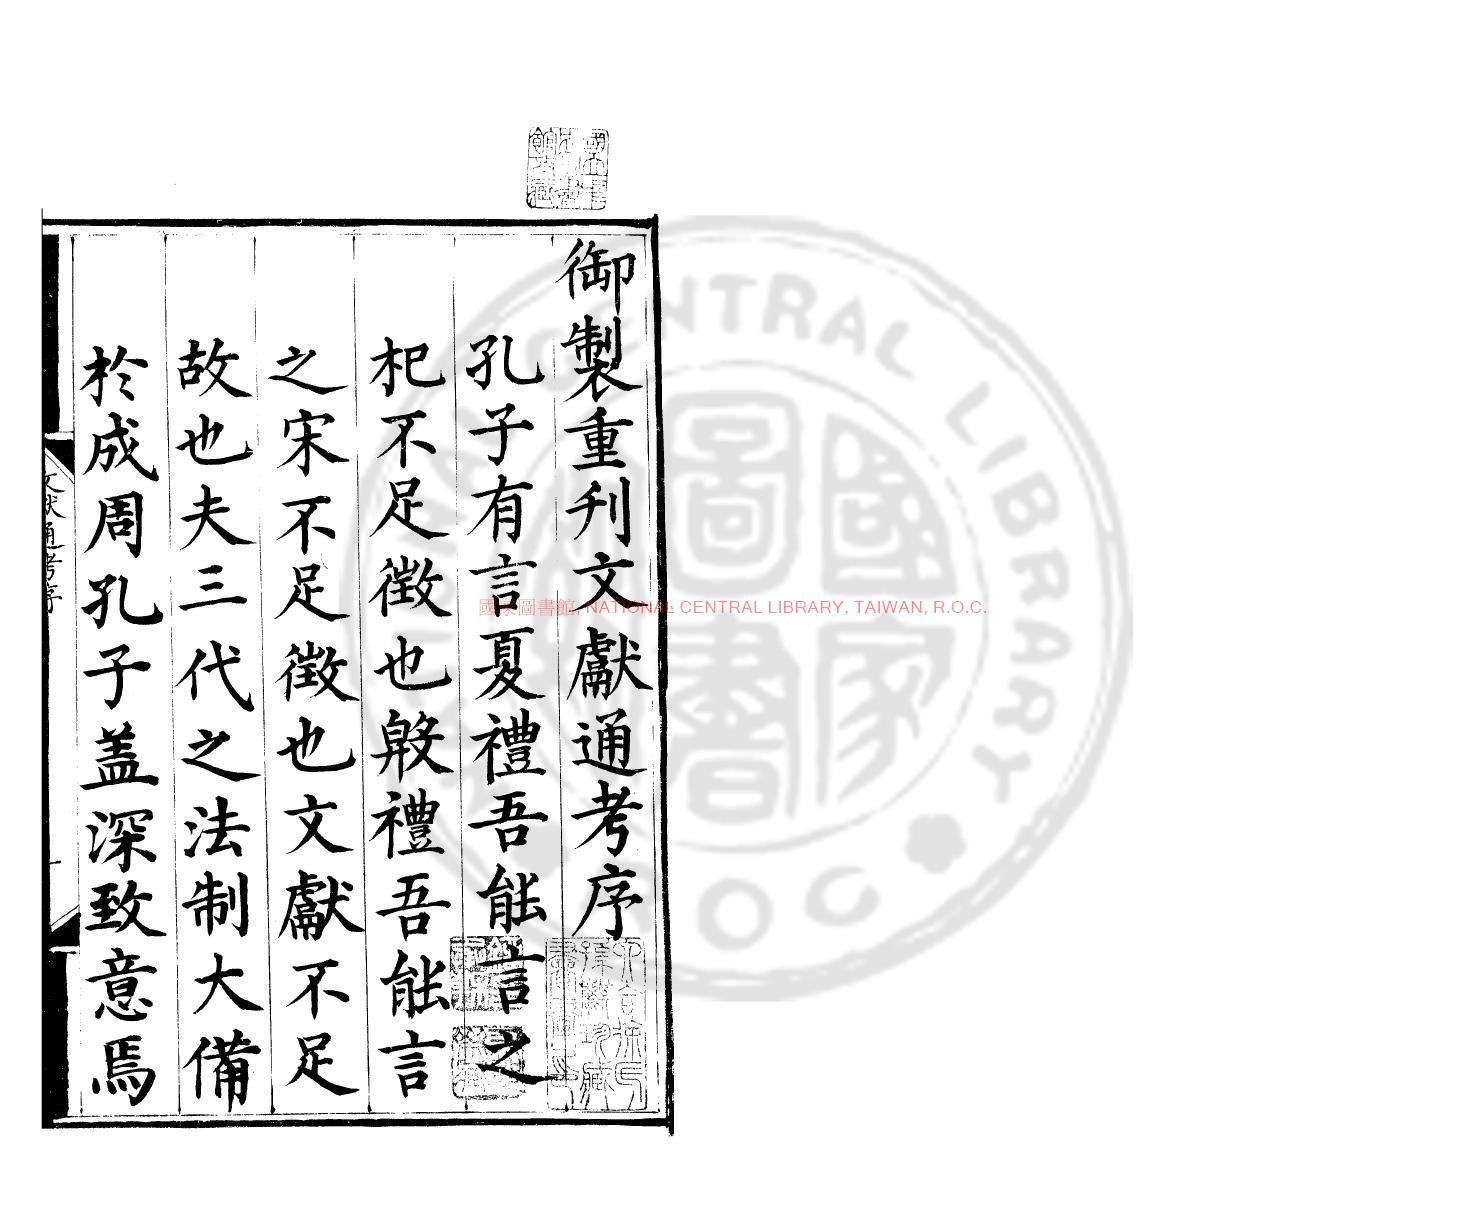 御製重刋文獻通考序
孔子有言夏禮吾能言之
杞不足徴也殷禮吾能言
之宋不足徴也文獻不足
故也夫三代之法制大備
於成周孔子盖深致意焉
文獻通考序
國家圖書館, NATIONAL CENTRAL LIBRARY, TAIWAN, R.O.C.
CENTRAL LIBRARY
國家圖書